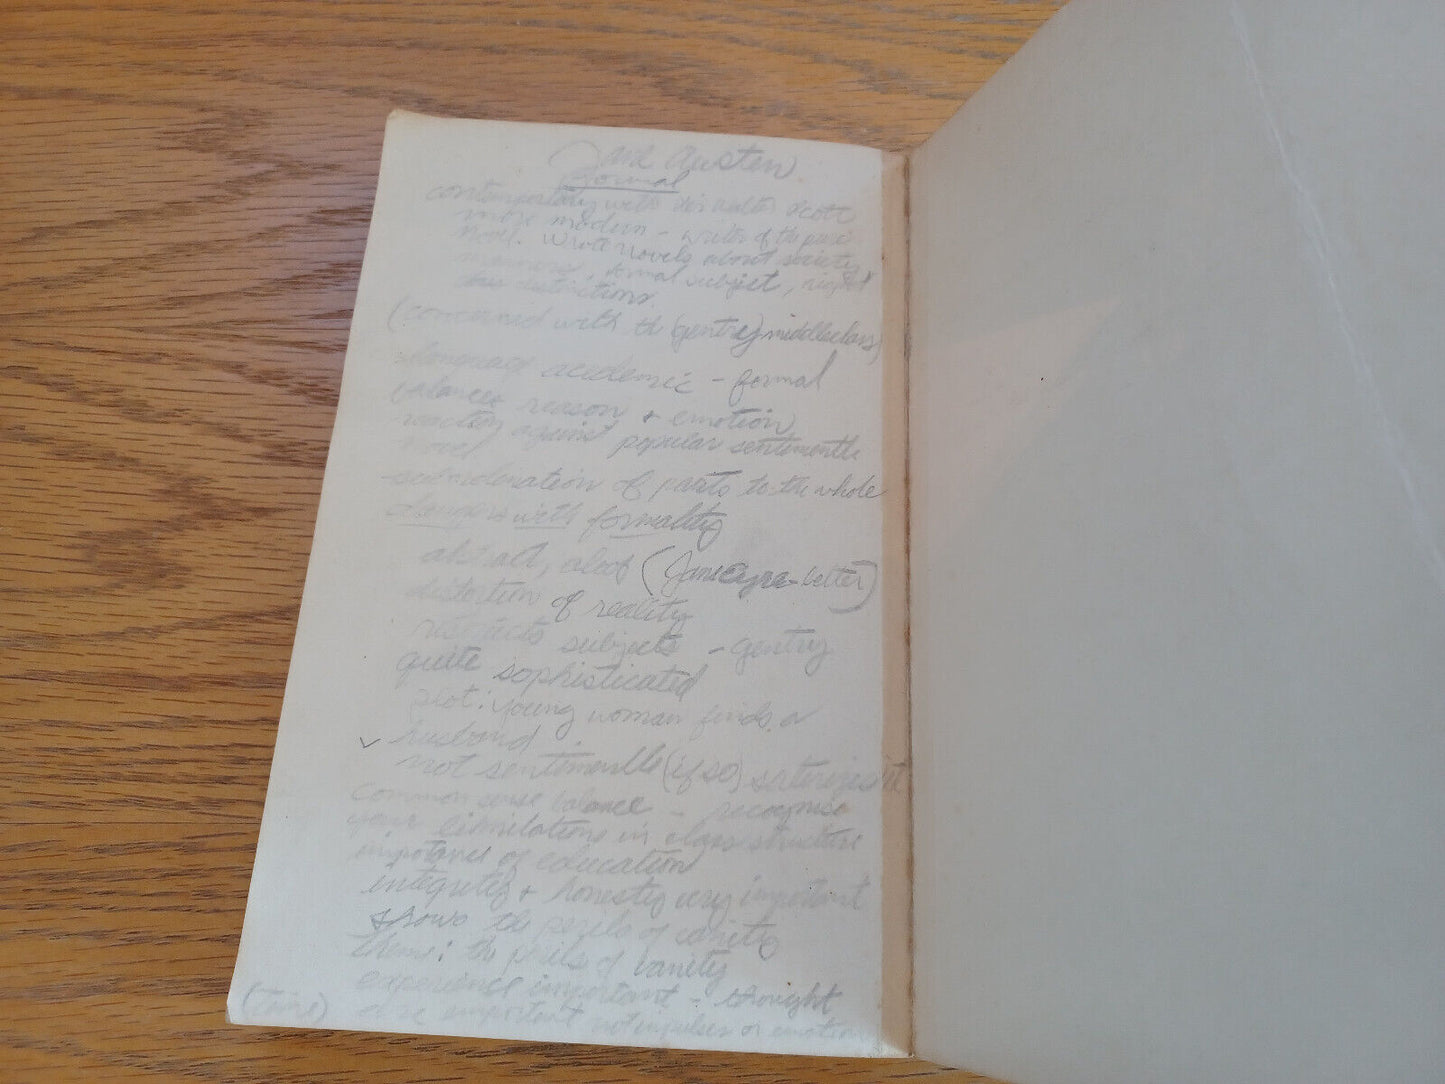 Jane Austen.
formal
contemporary with Sir Walter Scott
more modern - writer of the pure
novel. Wrote novels about society
manners, formal subject, rigid
class distinctions.
(concerned with th (gentry) middleclass)
language academic - formal
balances reason + emotion
reaction against popular sentimentle
novel
subordination of parts to the whole
dangers with formality
abstract, aloof (Jane Eyre - better)
distortion of reality
restricts subjects - gentry
quite sophisticated
plot: young woman finds a
husband
not sentimentle (if so) satirizes it
common sense balance - recognise
your limitations in class structure
importance of education
integrity + honesty very important
shows the perils of vanity
theme: the perils of vanity
experience important - thought
(Time) also important not impulses or emotion